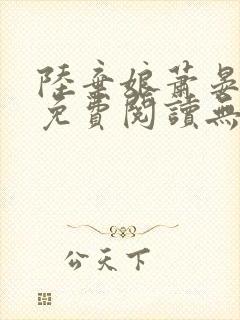 陸棄娘蕭晏
免費閱讀無
公天下